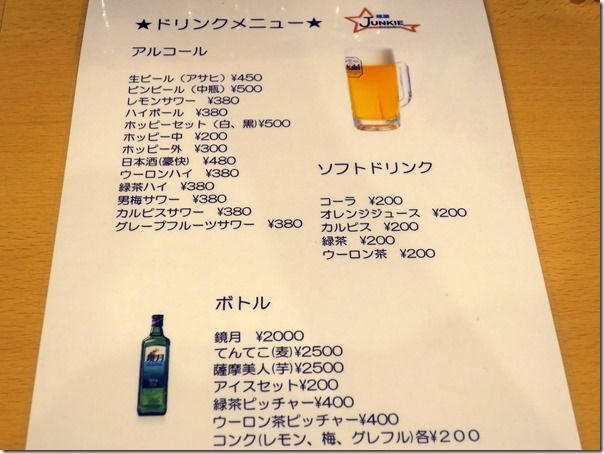 ★ドリンクメニュー★
JUNKIE
アルコール
生ビール（アサヒ）¥450
ビンビール（中瓶）¥500
レモンサワー ¥380
ハイボール ¥380
ホッピーセット（白、黒)¥500
ホッピー中 ¥200
ホッピー外 ¥300
日本酒(豪快) ¥480
ウーロンハイ ¥380
緑茶ハイ ¥380
男梅サワー ¥380
カルピスサワー ¥380
グレープフルーツサワー ¥380
Asahi
ソフトドリンク
コーラ ¥200
オレンジジュース ¥200
カルピス ¥200
緑茶 ¥200
ウーロン茶 ¥200
ボトル
鏡月 ¥2000
てんてこ(麦)¥2500
薩摩美人(芋)¥2500
アイスセット¥200
緑茶ピッチャー¥400
ウーロン茶ピッチャー¥400
コンク(レモン、梅、グレフル)各¥200
鏡月